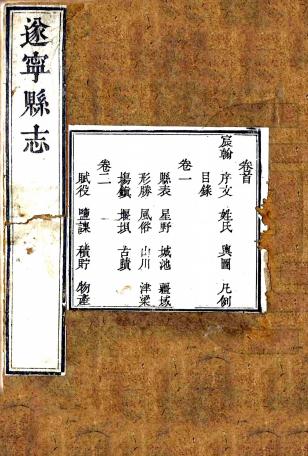 遂寧縣志
卷首
宸翰 序文 姓氏 輿圖 凡例
目錄
卷一
縣表 星野 城池 疆域
形勝 風俗 山川 津梁
塲鎮 堰埧 古蹟
卷二
賦役 鹽課 積貯 物產